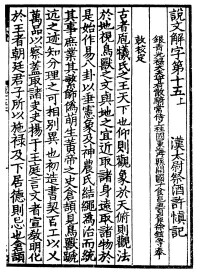 說文解字第十五上
漢太尉祭酒許慎記
銀青光祿大夫守右散騎常侍上柱國東海縣開國子食邑五百戶臣徐鉉等奉
敕校定
古者庖犧氏之王天下也仰則觀象於天俯則觀法
於地視鳥獸之文與地之宜近取諸身遠取諸物於
是始作易八卦以垂憲象及神農氏結繩為治而統
其事庶業其繁飾偽萌生黃帝史倉頡見鳥獸蹏
迒之迹知分理之可相別異也初造書契百工以乂
萬品以察蓋取諸夬夬揚于王庭言文者宣教明化
於王者朝廷君子所以施祿及下居德則忌也倉頡